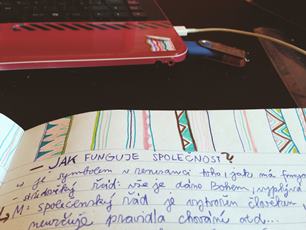 – JAK FUNGUJE SPOLEČNOST?
je symbolem v renesanci toho jak má fungovat
středověký řád: vše je dáno Bohem, vyplývá
M: společenský řád je vytvořen člověkem
neurčuje pravidla chování atd...